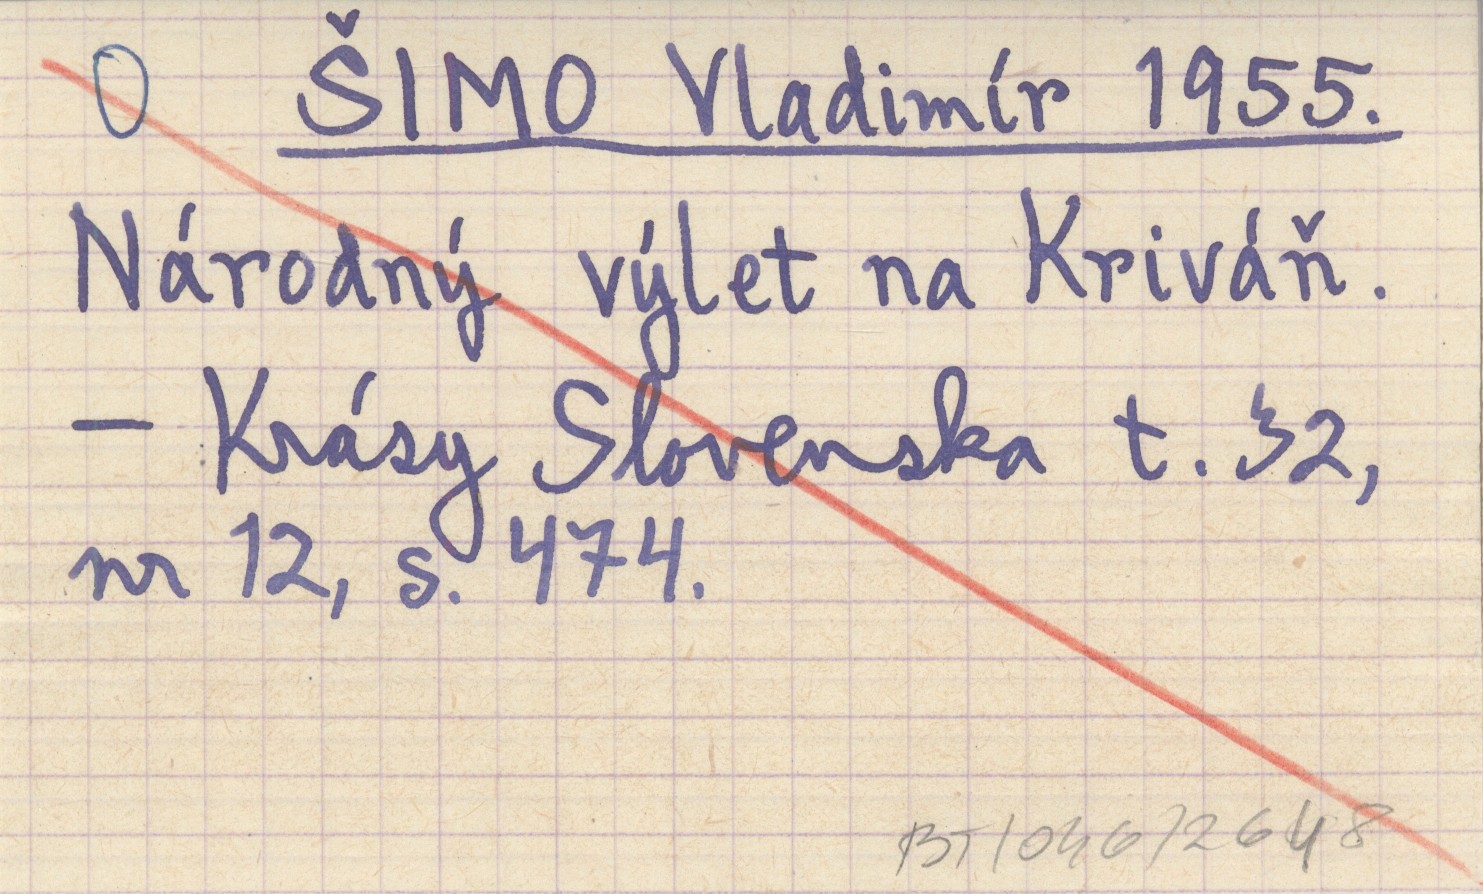 O ŠIMO Vladimír 1955.
Národný výlet na Kriváň.
— Krásy Slovenska t. 32,
nr 12, s. 474.
BT/046/2648